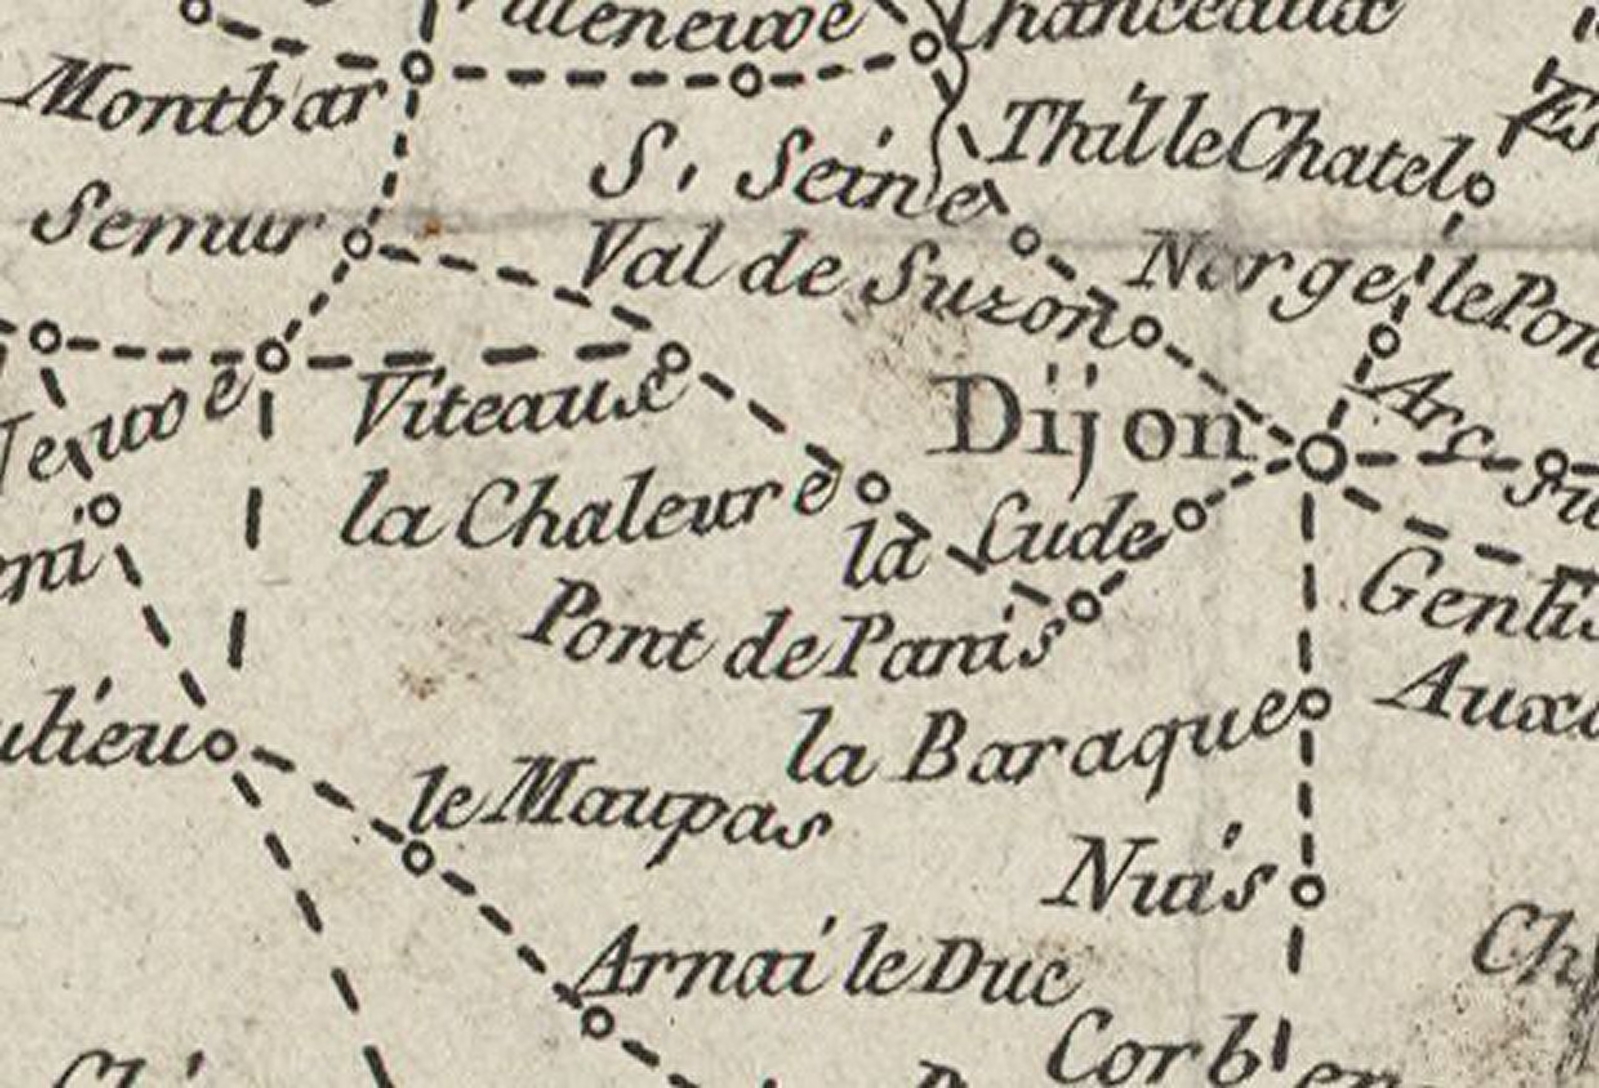 Chanceaux
Montbar
Thil le Chatel
S. Seine
Semur
Val de Suzon
Norge le Pon
Viteaux
Dijon
Arc
la Chaleure
la Cude
Gentis
Pont de Panis
la Baraque
Auxo
ulieu
le Maupas
Nuis
Arnai le Duc
Ch
Corb